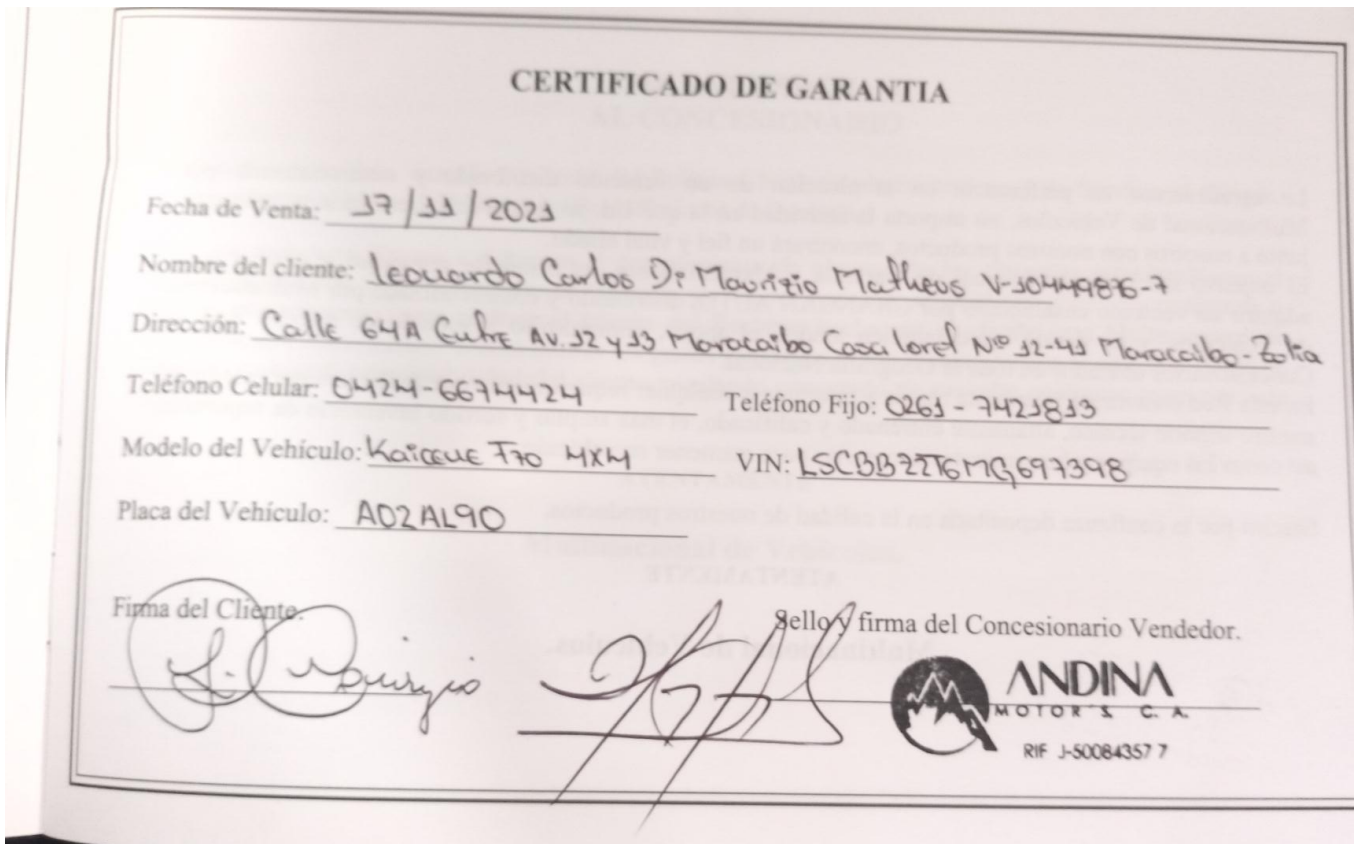 CERTIFICADO DE GARANTIA
Fecha de Venta: 17/11/2021
Nombre del cliente: Leonardo Carlos Di Maurizio Matheus V-10449876-7
Dirección: Calle 64A Entre Av. 12 y 13 Maracaibo Casa loref Nº 12-41 Maracaibo-Zulia
Teléfono Celular: 0424-6674424 Teléfono Fijo: 0261-7421813
Modelo del Vehículo: Kaicene F70 4x4 VIN: LSCBB22T6MG697398
Placa del Vehículo: A02AL90
Firma del Cliente. Sello y firma del Concesionario Vendedor.
ANDINA
MOTOR'S C. A.
RIF J-50084357 7